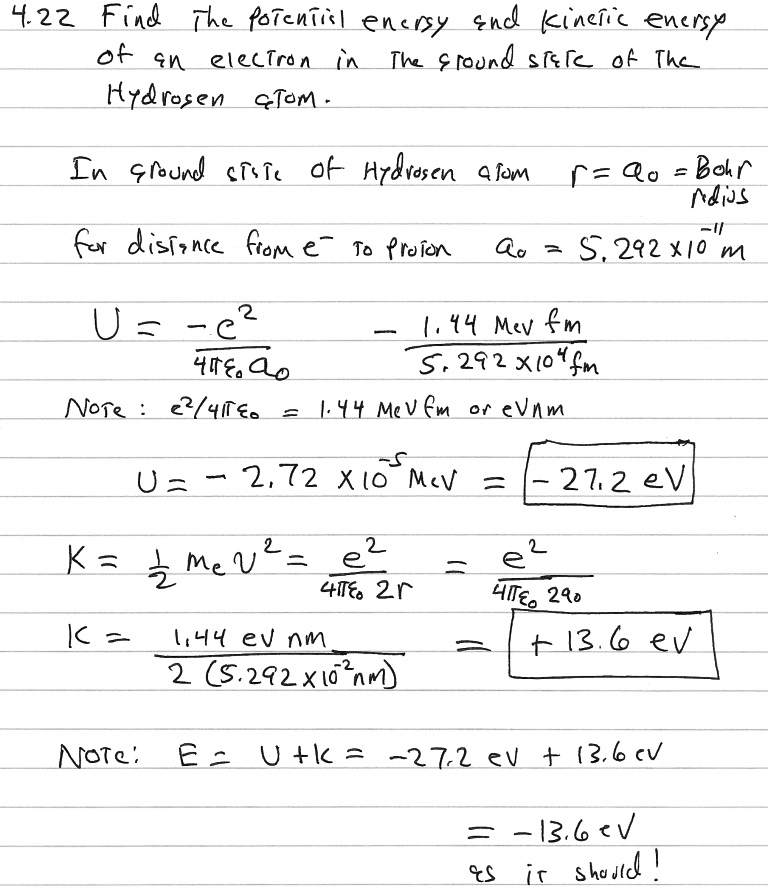 4.22 Find The potential energy and kinetic energy
of an electron in The ground state of The
Hydrogen atom.
In ground state of Hydrogen atom r = a₀ = Bohr
radius
for distance from e⁻ to proton a₀ = 5.292 x10⁻¹¹ m
U = -e²/4πε₀a₀ - 1.44 MeV fm/5.292 x10⁴ fm
Note: e²/4πε₀ = 1.44 MeV fm or eVnm
U = - 2.72 x10⁻⁵ MeV = -27.2 eV
K = 1/2 mₑv² = e²/4πε₀ 2r = e²/4πε₀ 2a₀
K = 1.44 eV nm/2 (5.292 x10⁻² nm) = + 13.6 eV
Note: E = U + K = -27.2 eV + 13.6 eV
= -13.6 eV
as it should!